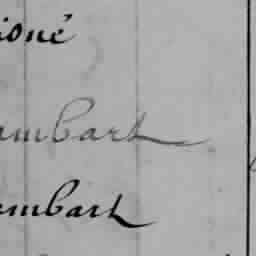 ioné
ambart
ambart